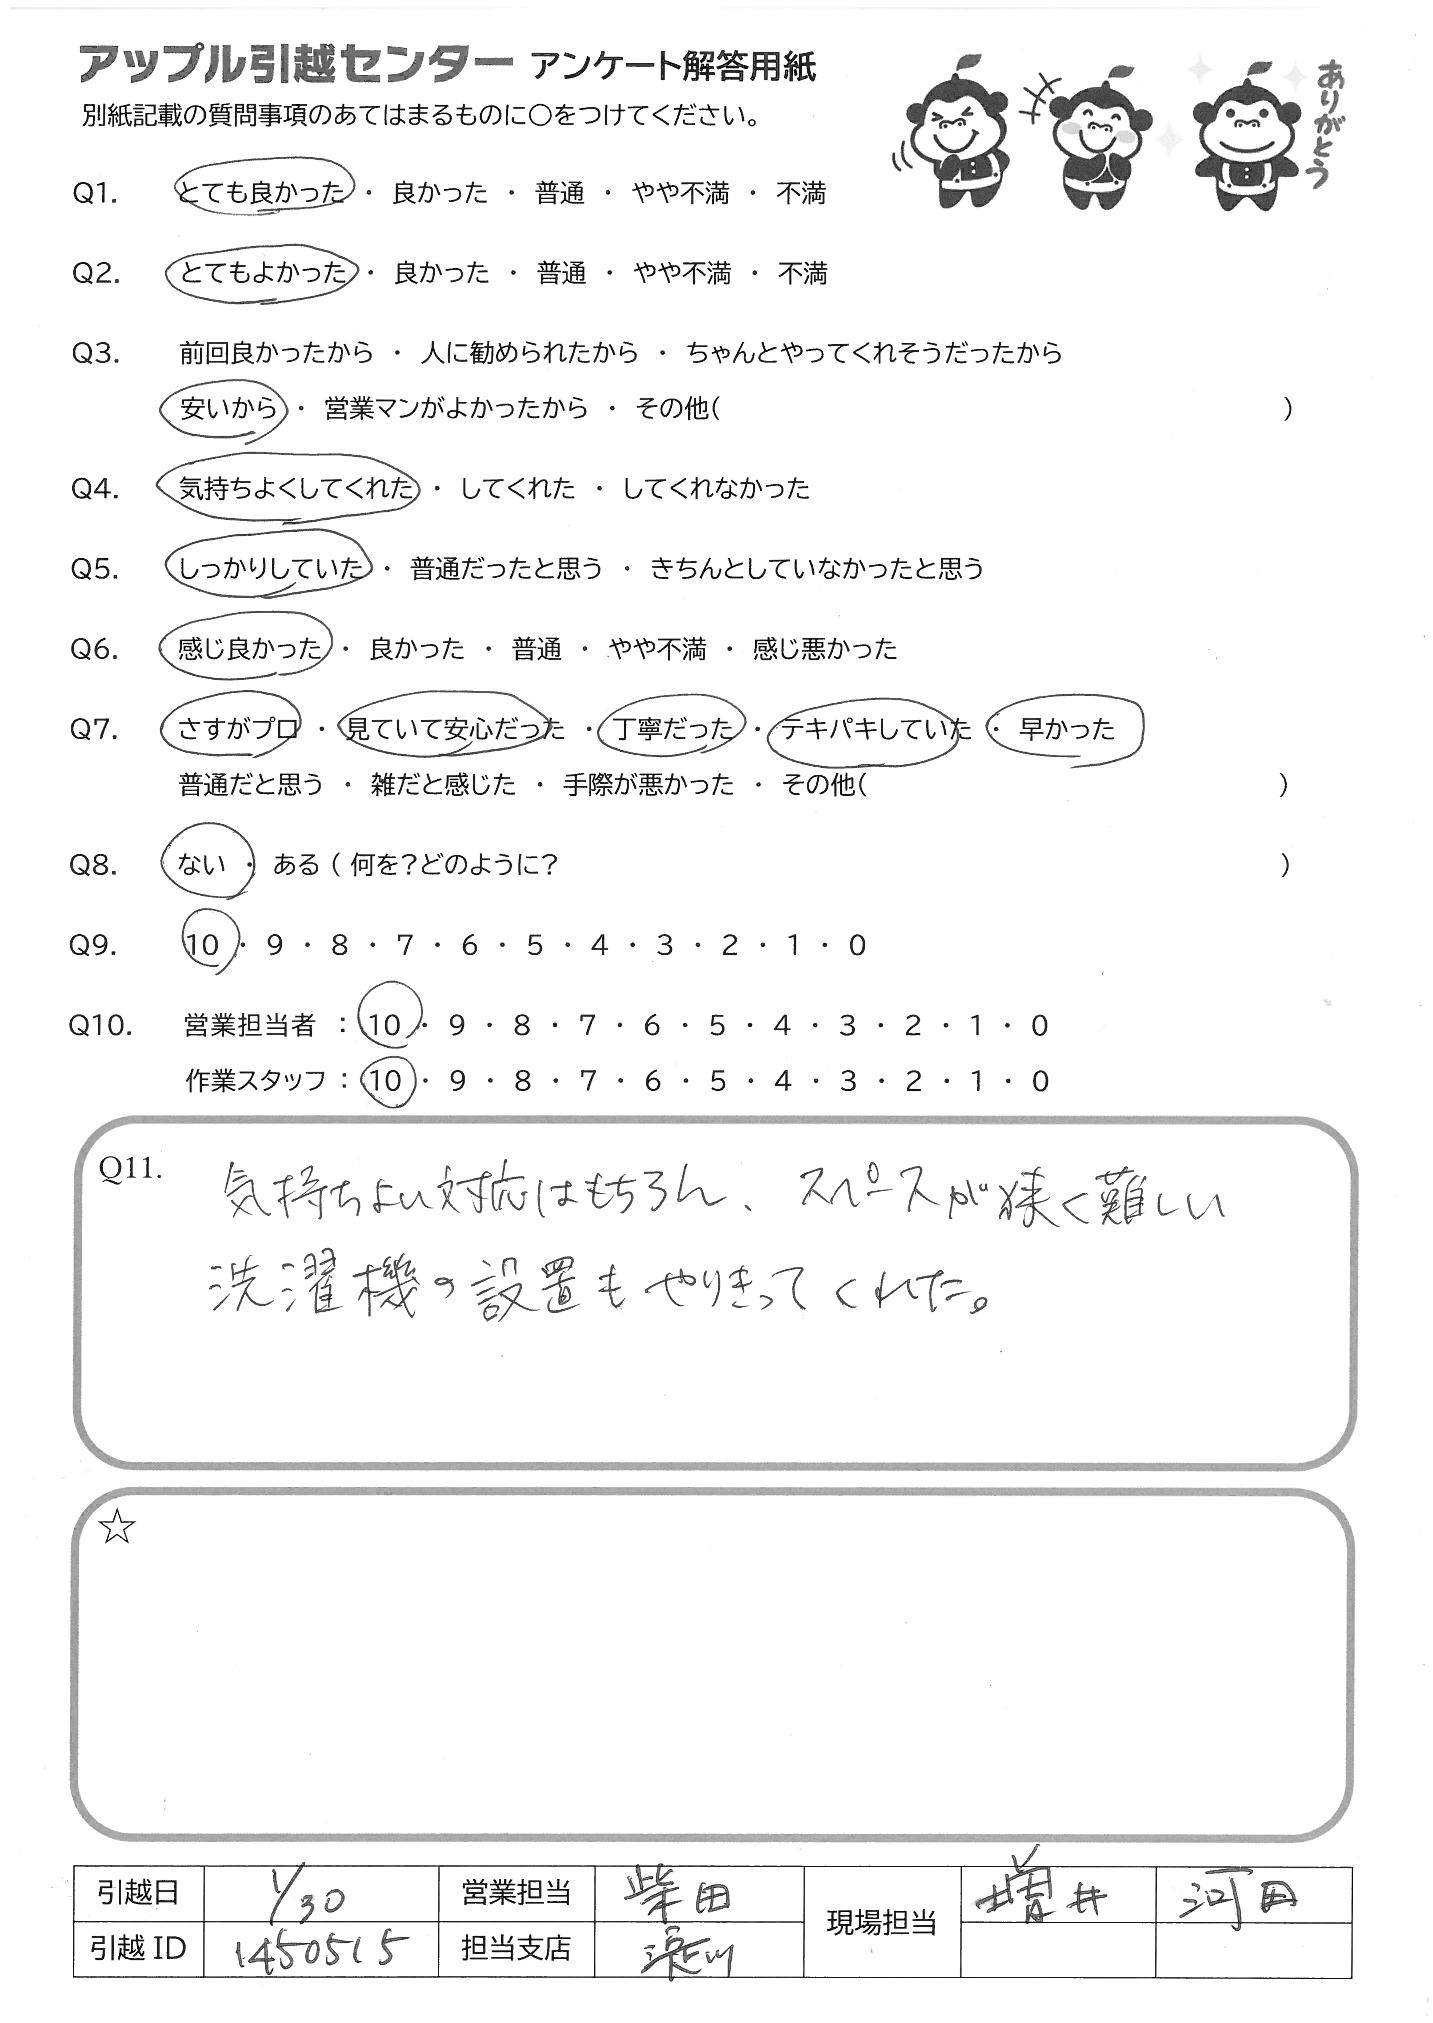 アップル引越センター アンケート解答用紙
別紙記載の質問事項のあてはまるものに〇をつけてください。
ありがとう
Q1. とても良かった ・ 良かった ・ 普通 ・ やや不満 ・ 不満
Q2. とてもよかった ・ 良かった ・ 普通 ・ やや不満 ・ 不満
Q3. 前回良かったから ・ 人に勧められたから ・ ちゃんとやってくれそうだったから
安いから ・ 営業マンがよかったから ・ その他( )
Q4. 気持ちよくしてくれた ・ してくれた ・ してくれなかった
Q5. しっかりしていた ・ 普通だったと思う ・ きちんとしていなかったと思う
Q6. 感じ良かった ・ 良かった ・ 普通 ・ やや不満 ・ 感じ悪かった
Q7. さすがプロ ・ 見ていて安心だった ・ 丁寧だった ・ テキパキしていた ・ 早かった
普通だと思う ・ 雑だと感じた ・ 手際が悪かった ・ その他( )
Q8. ない ・ ある ( 何を?どのように? )
Q9. 10 ・ 9 ・ 8 ・ 7 ・ 6 ・ 5 ・ 4 ・ 3 ・ 2 ・ 1 ・ 0
Q10. 営業担当者 : 10 ・ 9 ・ 8 ・ 7 ・ 6 ・ 5 ・ 4 ・ 3 ・ 2 ・ 1 ・ 0
作業スタッフ : 10 ・ 9 ・ 8 ・ 7 ・ 6 ・ 5 ・ 4 ・ 3 ・ 2 ・ 1 ・ 0
Q11. 気持ちよい対応はもちろん、スペースが狭く難しい
洗濯機の設置もやりきってくれた。
☆
引越日 1/30 営業担当 柴田 現場担当 増井 河田
引越ID 1450515 担当支店